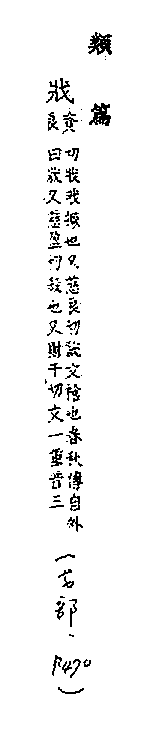 類篇
戕
資良
切戕戕掁也又慈良切說文槍也春秋傳自外
曰戕又慈盈切殺也又財干切文一重音三
(戈部、P470)